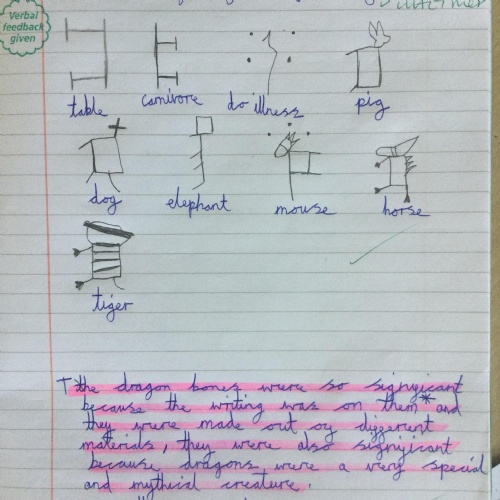 Verbal
feedback
given
table carnivore do illness pig
dog elephant mouse horse
tiger
T the dragon bones were so signiyicant
because the writing was on them* and
they were made out oy diyyerent
materials, they were also signiyicant
because dragons were a very special
and mythical creature.